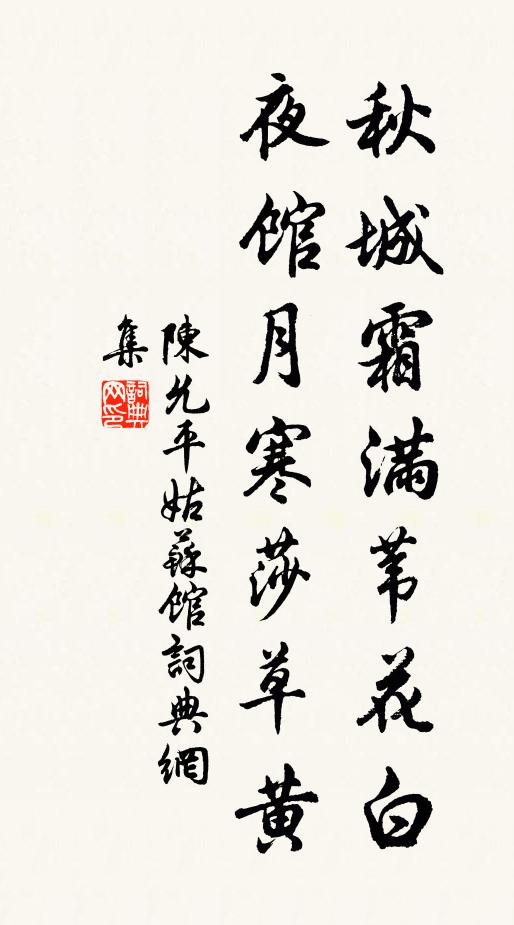 秋城霜滿苇花白
夜馆月寒莎草黃
陳允平姑蘇馆詞典網
集
詞典网印